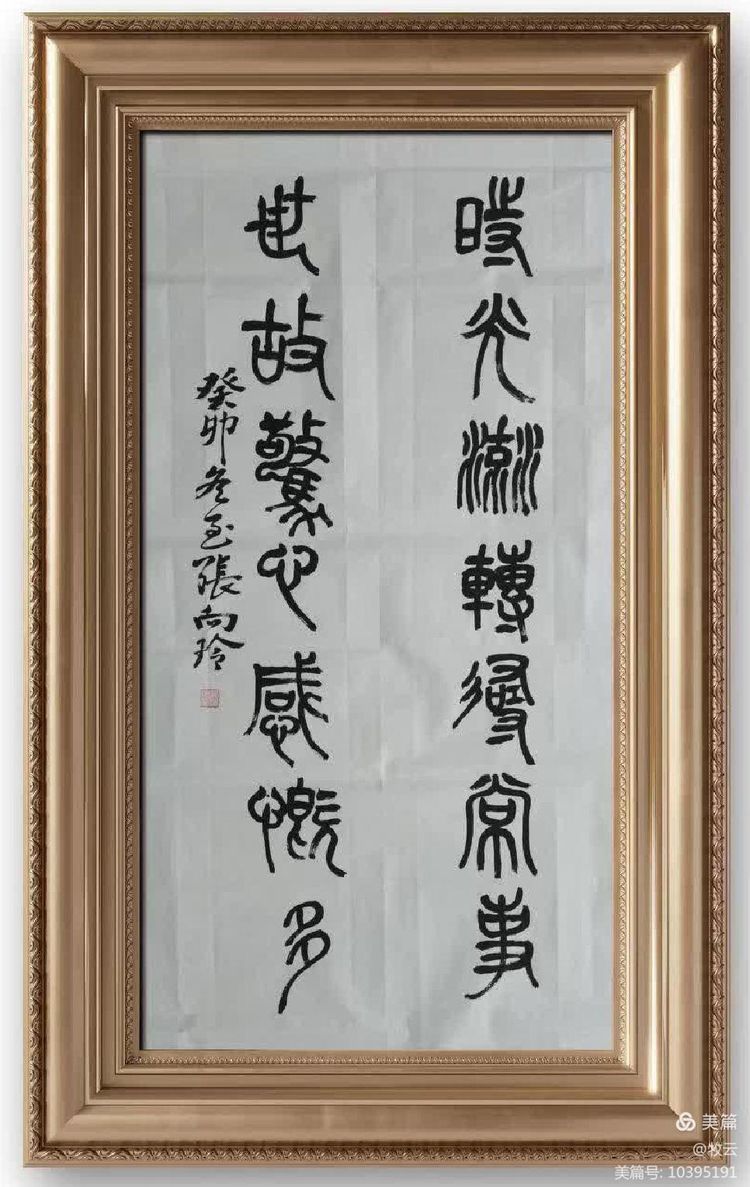 時光流轉尋常事
世故驚心感慨多
癸卯冬至張向玲
美篇
@牧云
美篇号: 10395191